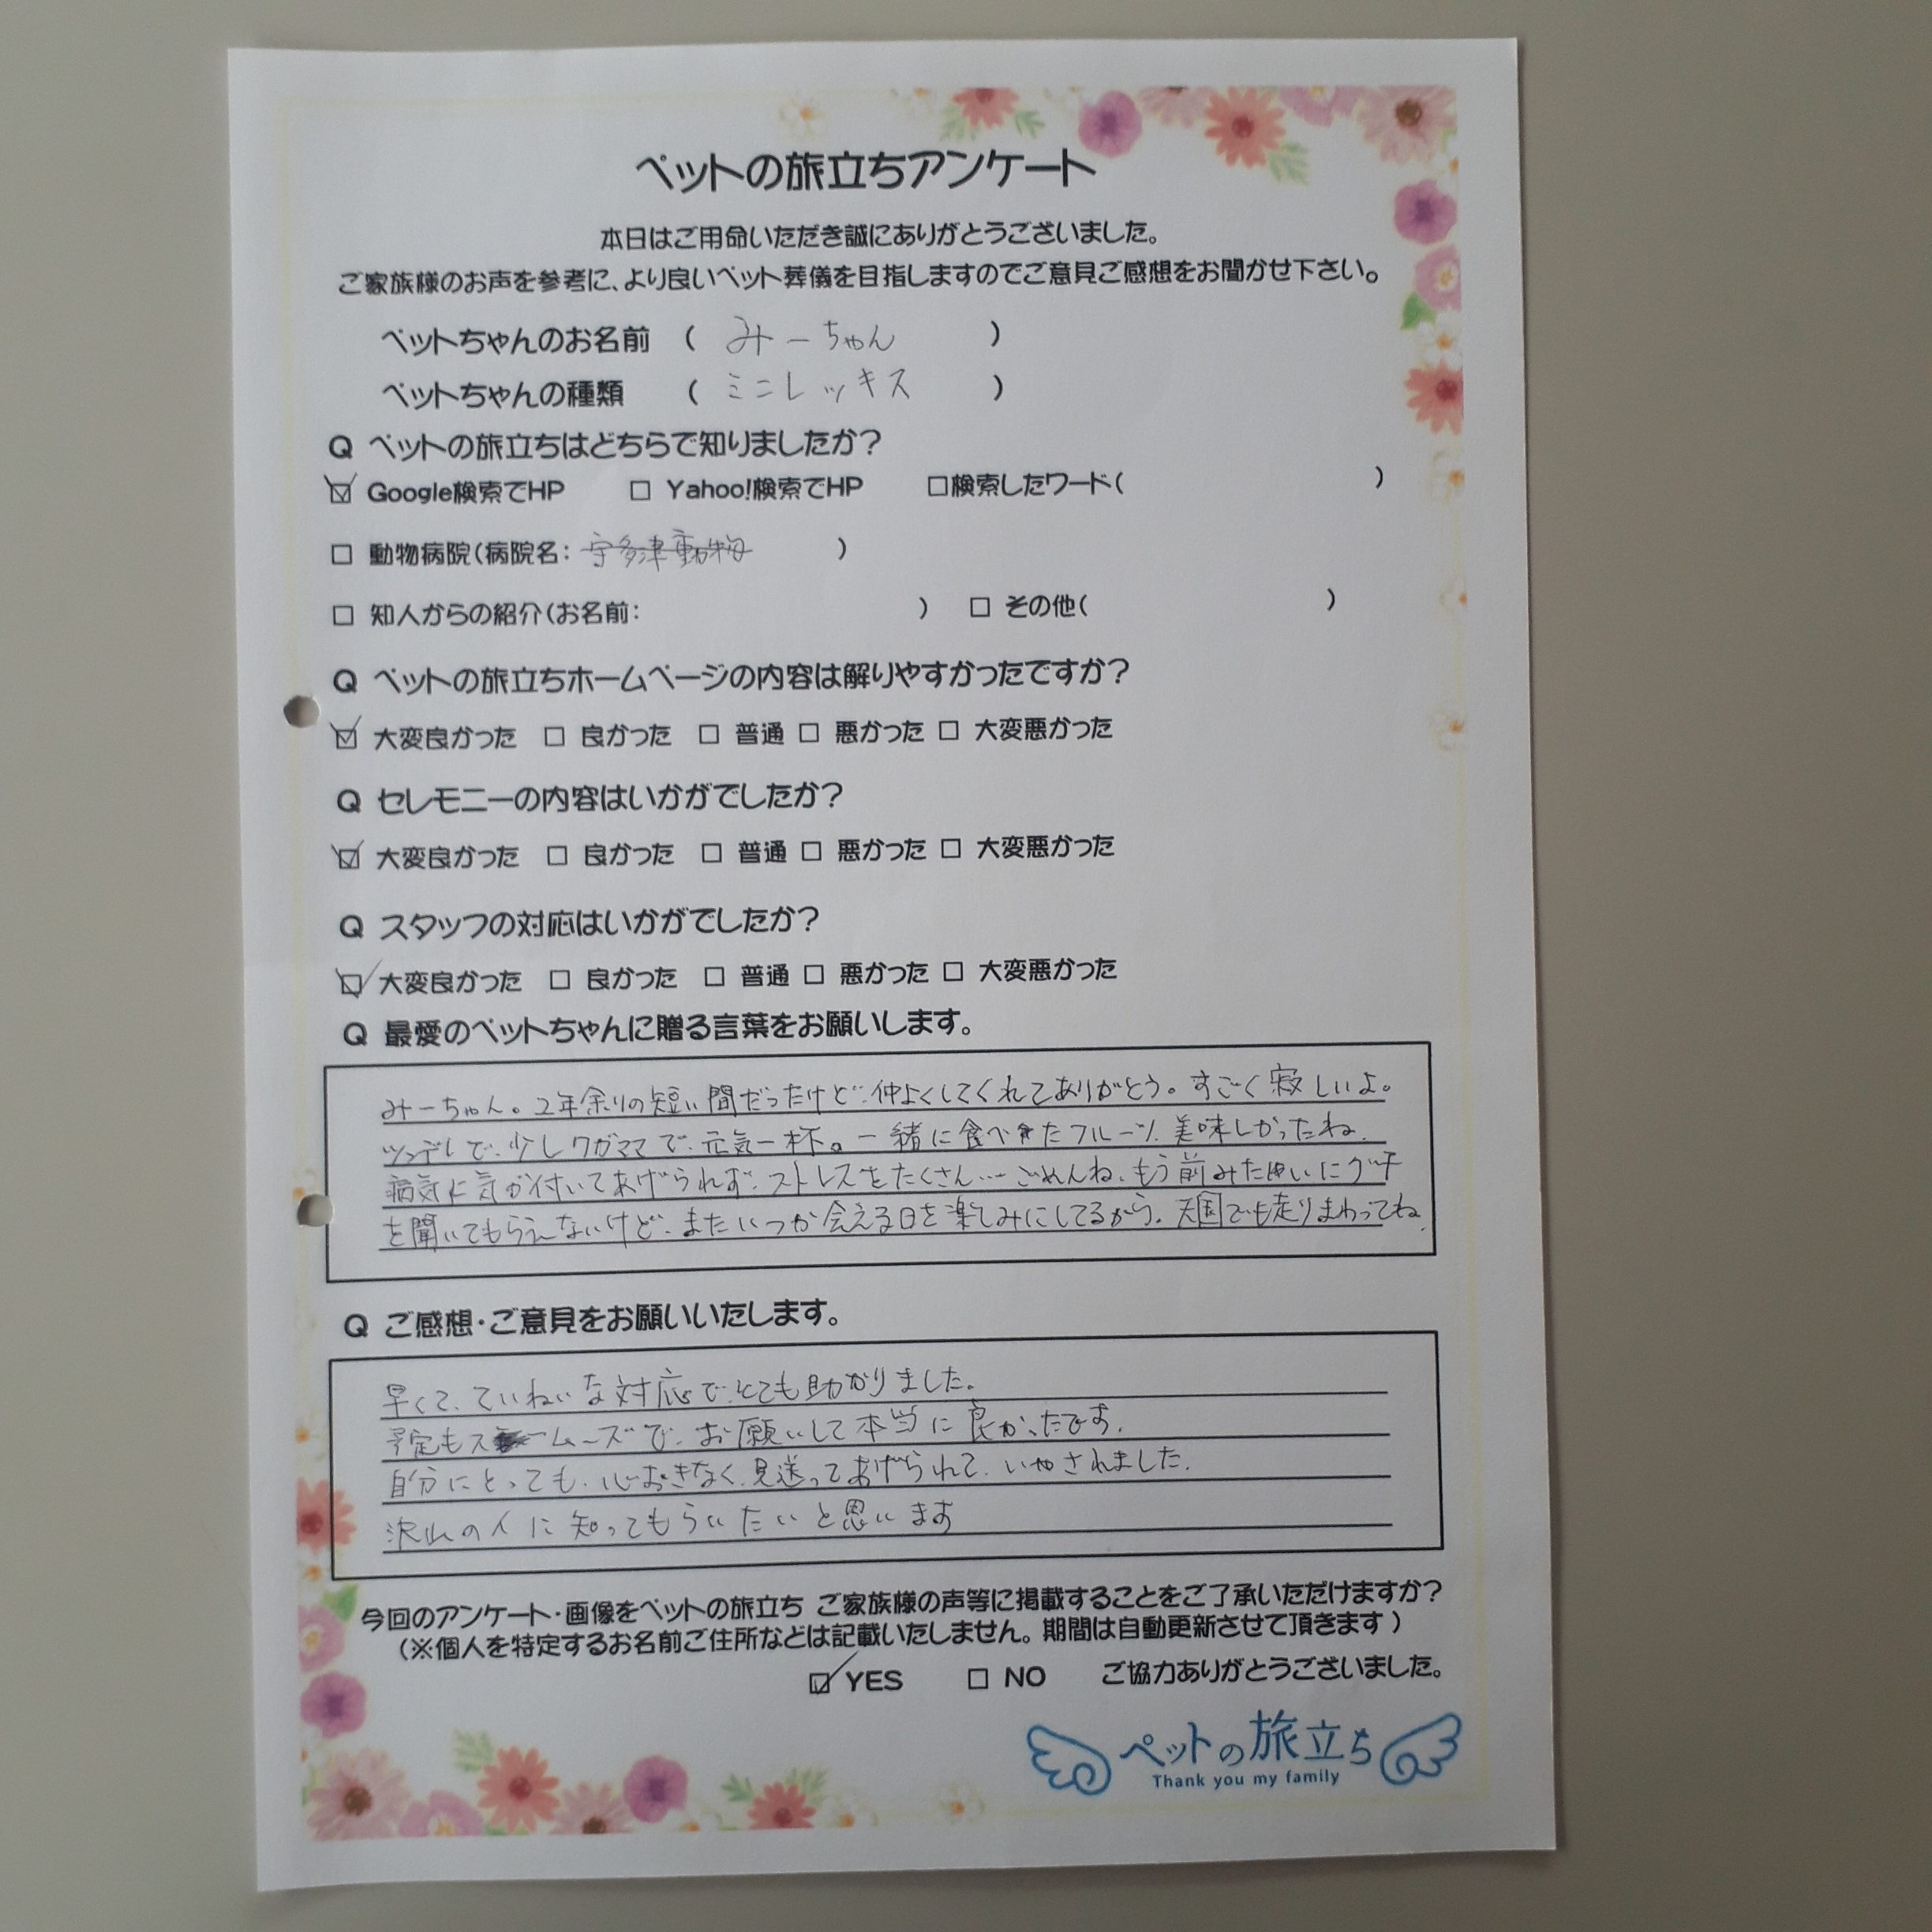 ペットの旅立ちアンケート
本日はご用命いただき誠にありがとうございました。
ご家族様のお声を参考に、より良いペット葬儀を目指しますのでご意見ご感想をお聞かせ下さい。
ペットちゃんのお名前 ( みーちゃん )
ペットちゃんの種類 ( ミニレッキス )
Q ペットの旅立ちはどちらで知りましたか?
☑ Google検索でHP □ Yahoo!検索でHP □検索したワード( )
□ 動物病院(病院名: 宇多津動物 )
□ 知人からの紹介(お名前: ) □ その他( )
Q ペットの旅立ちホームページの内容は解りやすかったですか?
☑ 大変良かった □ 良かった □ 普通 □ 悪かった □ 大変悪かった
Q セレモニーの内容はいかがでしたか?
☑ 大変良かった □ 良かった □ 普通 □ 悪かった □ 大変悪かった
Q スタッフの対応はいかがでしたか?
☑ 大変良かった □ 良かった □ 普通 □ 悪かった □ 大変悪かった
Q 最愛のペットちゃんに贈る言葉をお願いします。
みーちゃん。2年余りの短い間だったけど、仲よくしてくれてありがとう。すごく寂しいよ。
ツンデレで、少しワガママで、元気一杯。一緒に食べたフルーツ、美味しかったね。
病気に気が付いてあげられず、ストレスをたくさん…ごめんね。もう前みたいにグチ
を聞いてもらえないけど、またいつか会える日を楽しみにしてるから。天国でも走りまわってね。
Q ご感想・ご意見をお願いいたします。
早くて、ていねいな対応で、とても助かりました。
予定もスムーズで、お願いして本当に良かったです。
自分にとっても、心おきなく、見送ってあげられて、いやされました。
沢山の人に知ってもらいたいと思います
今回のアンケート・画像をペットの旅立ち ご家族様の声等に掲載することをご了承いただけますか?
(※個人を特定するお名前ご住所などは記載いたしません。期間は自動更新させて頂きます)
☑ YES □ NO ご協力ありがとうございました。
ペットの旅立ち
Thank you my family